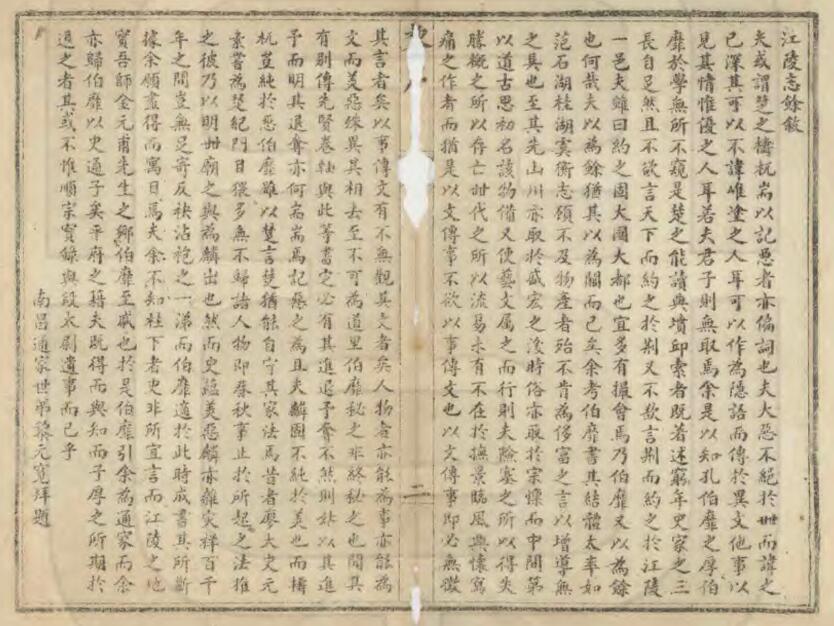 江陵志餘敘
夫或謂楚之檮杌耑以記惡者亦偏詞也夫大惡不絕於世而諱之
已深其可以不諱唯塗之人耳可以作為隱語而傳於異文他事以
見其情惟優之人耳若夫君子則無取焉余是以知孔伯靡之厚伯
靡於學無所不窺是楚之能讀典墳邱索者既著述窮年史家之三
長自足然且不欲言天下而約之於荆又不欲言荆而約之於江陵
一邑夫雖曰約之固大國大都也宜多有撮會焉乃伯靡又以為餘
也何哉夫以為餘猶其以為闕而已矣余考伯靡書其結體大率如
范石湖桂湖虞衡志領不及物產者殆不肯為侈富之言以增導無
之具也至其先山川亦取於盛宏之後時俗亦取於宗懍而中間第
以道古思初名該物備又使藝文属之而行則夫險塞之所以得失
勝概之所以存亡世代之所以流易未有不在於撫景臨風興懷寫
痛之作者而猶是以文傳事不欲以事傳文也以文傳事即必無徵
其言者矣以事傳文有不無觀其文者矣人物者亦能為事亦能為
文而美惡殊異其相去至不可為道里伯靡秘之非終秘之也聞其
有别傳先賢卷軸與此等書定必有其進退予奪不然則非以其進
予而明其退奪亦何耑耑焉記惡之為且夫麟固不純於美也而檮
杌豈純於惡伯靡雖以楚言楚猶能自守其家法焉昔者廖大史元
素嘗為楚紀門目猥多無不歸諸人物即春秋事止於所起之法推
之彼乃以明世廟之興為麟出也然而史蕴美惡麟亦雜灾祥百千
年之間豈無足寄反袂沾袍之一涕而伯靡適於此時成書其所斷
據余順盡得而寓目焉夫余不知柱下者史非所宜言而江陵之地
實吾師金元甫先生之鄉伯靡至戚也於是伯靡引余為通家而余
亦歸伯靡以史通子矣乎府之籍夫既得而與知而子厚之所期於
退之者其或不惟順宗實錄與段太尉遺事而已乎
南昌通家世弟黎元寬拜題
二